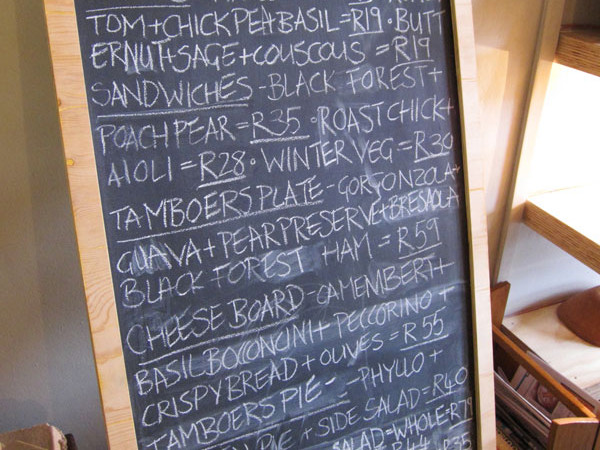 TOM+CHICKPEA+BASIL=R19·BUTT
ERNUT+SAGE+COUSCOUS = R19
SANDWICHES-BLACK FOREST+
POACH PEAR=R35·ROAST CHICK+
AIOLI=R28·WINTER VEG=R30
TAMBOERS PLATE-GORGONZOLA+
GUAVA+PEAR PRESERVE+BRESAOLA
BLACK FOREST +HAM = R59
CHEESE BOARD-CAMEMBERT+
BASIL BOCCONCINI+PECCORINO +
CRISPYBREAD+OLIVES=R55
TAMBOERS PIE--PHYLLO +
PINE + SIDE SALAD=R40
SALAD=WHOLE=R79
R44 R35